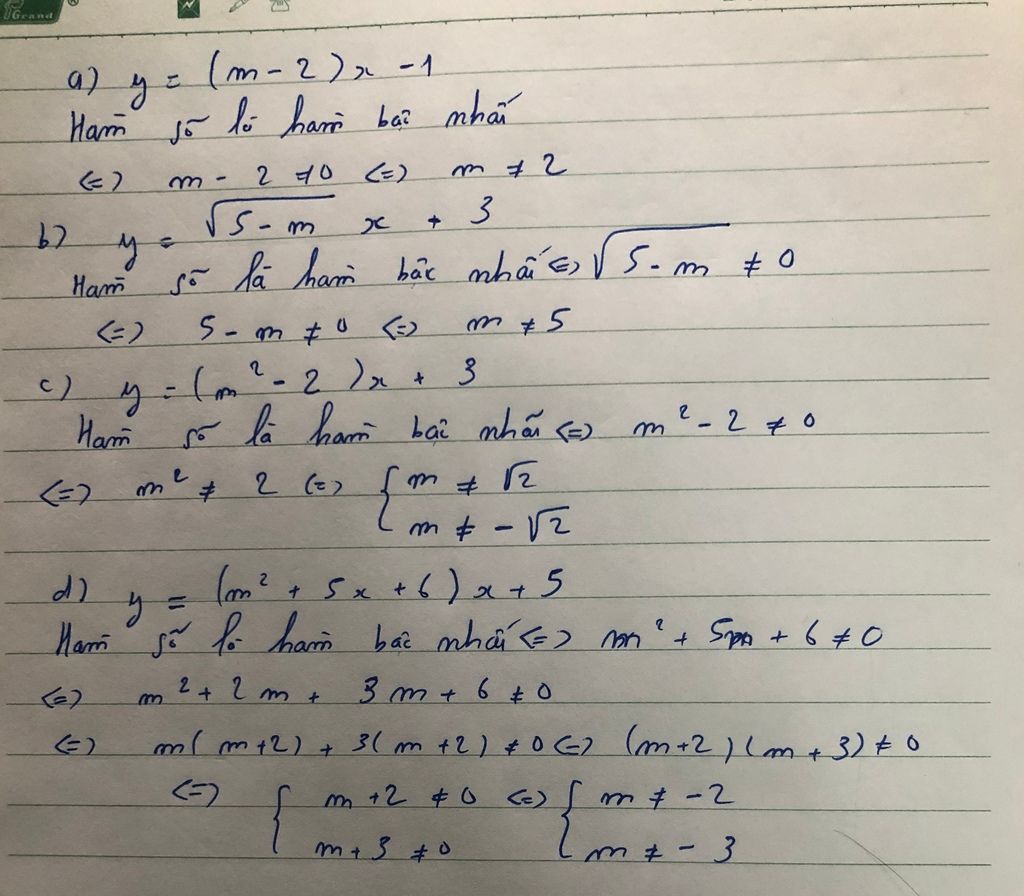 Grand
a) y = (m - 2)x - 1
Hàm số là hàm bậc nhất
<=> m - 2 ≠ 0 <=> m ≠ 2
b) y = √(5 - m) x + 3
Hàm số là hàm bậc nhất <=> √(5 - m) ≠ 0
<=> 5 - m ≠ 0 <=> m ≠ 5
c) y = (m² - 2)x + 3
Hàm số là hàm bậc nhất <=> m² - 2 ≠ 0
<=> m² ≠ 2 <=> { m ≠ √2
m ≠ -√2
d) y = (m² + 5x + 6)x + 5
Hàm số là hàm bậc nhất <=> m² + 5m + 6 ≠ 0
<=> m² + 2m + 3m + 6 ≠ 0
<=> m(m+2) + 3(m+2) ≠ 0 <=> (m+2)(m+3) ≠ 0
<=> { m+2 ≠ 0 <=> { m ≠ -2
m+3 ≠ 0 m ≠ -3